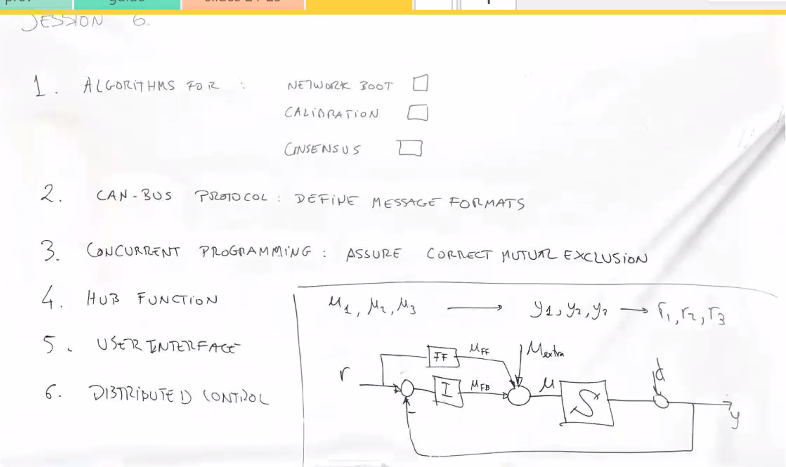 SESSION 6.
1. ALGORITHMS FOR : NETWORK BOOT
CALIBRATION
CONSENSUS
2. CAN-BUS PROTOCOL : DEFINE MESSAGE FORMATS
3. CONCURRENT PROGRAMMING : ASSURE CORRECT MUTUAL EXCLUSION
4. HUB FUNCTION
5. USER INTERFACE
6. DISTRIBUTED CONTROL
μ1, μ2, μ3 → y1, y2, y3 → r1, r2, r3
FF μFF μextra
r I μFB μ S d
-
y